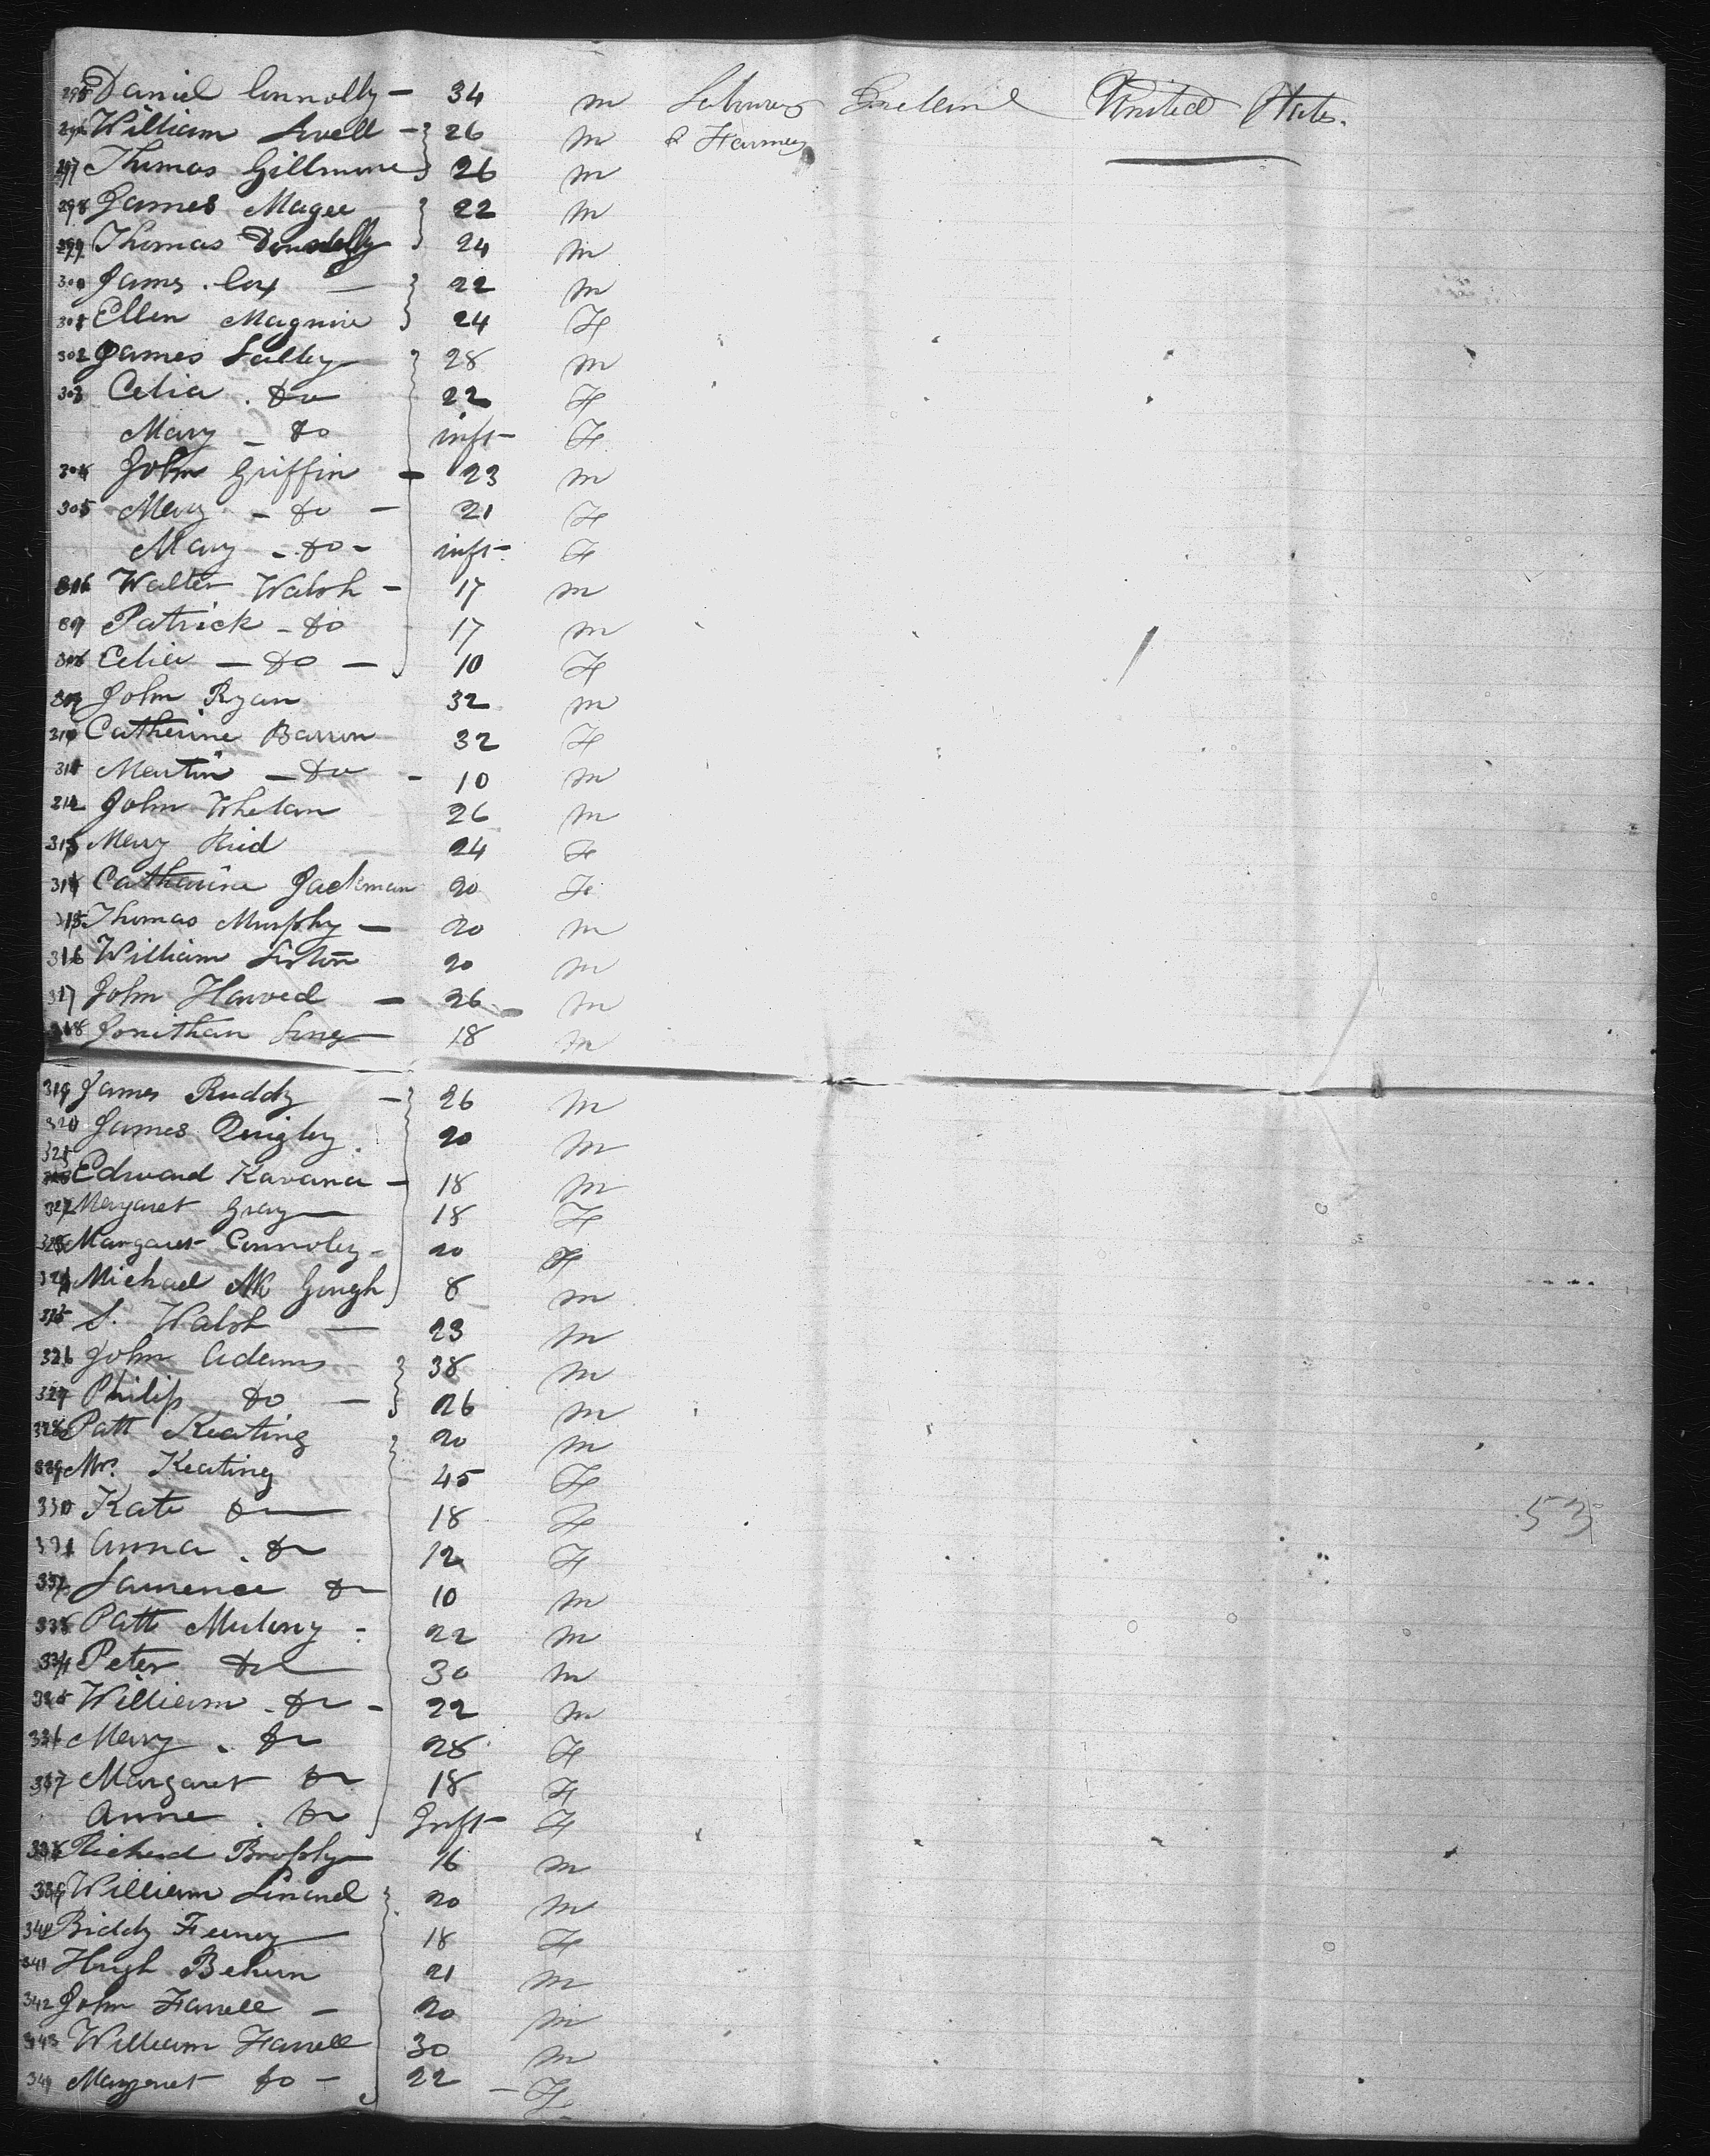 295 Daniel Connolly - 34 m Labourers Ireland United States.
296 William Lvell - 26 m & Farmers
297 Thomas Gillmore 26 m
298 James Magee 22 m
299 Thomas Donnelly 24 m
300 James Cox - 22 m
301 Ellen Maguire 24 F
302 James Lally 28 m
303 Celia Do 22 F
Mary - do inft F
304 John Griffin - 23 m
305 Mary - do - 21 F
Mary - do - inft F
306 Walter Walsh - 17 m
307 Patrick - do 17 m
308 Celia - do - 10 F
309 John Ryan 32 m
310 Catherine Barron 32 F
311 Martin - Do - 10 m
312 John Whelan 26 m
313 Mary Reid 24 F
314 Catharine Jackman 20 F
315 Thomas Murphy - 20 m
316 William 20 m
317 John - 26 m
318 Jonithan 18 m
319 James Ruddy - 26 m
320 James Quigley 20 m
321
Edward Kavana - 18 m
322 Margaret Gray 18 F
323 Margaret Connoley - 20 F
324 Michael Mc Gough 8 m
325 S. Walsh - 23 m
326 John Adams 38 m
327 Philip do - 26 m
328 Patt Keating 20 m
329 Mrs. Keating 45 F
330 Kate Do 18 F
331 Anna . Do 12 F
332 Laurence Do 10 m
333 Patt Mulony - 22 m
334 Peter Do 30 m
335 William . Do - 22 m
336 Mary . Do 28 F
337 Margaret Do 18 F
Anne . Do Inft F
338 Richard Brophy 16 m
339 William 20 m
340 Biddy Feeney 18 F
341 Hugh Behun 21 m
342 John Farrell - 20 m
343 William Farrell 30 m
344 Margaret do - 22 - F
53